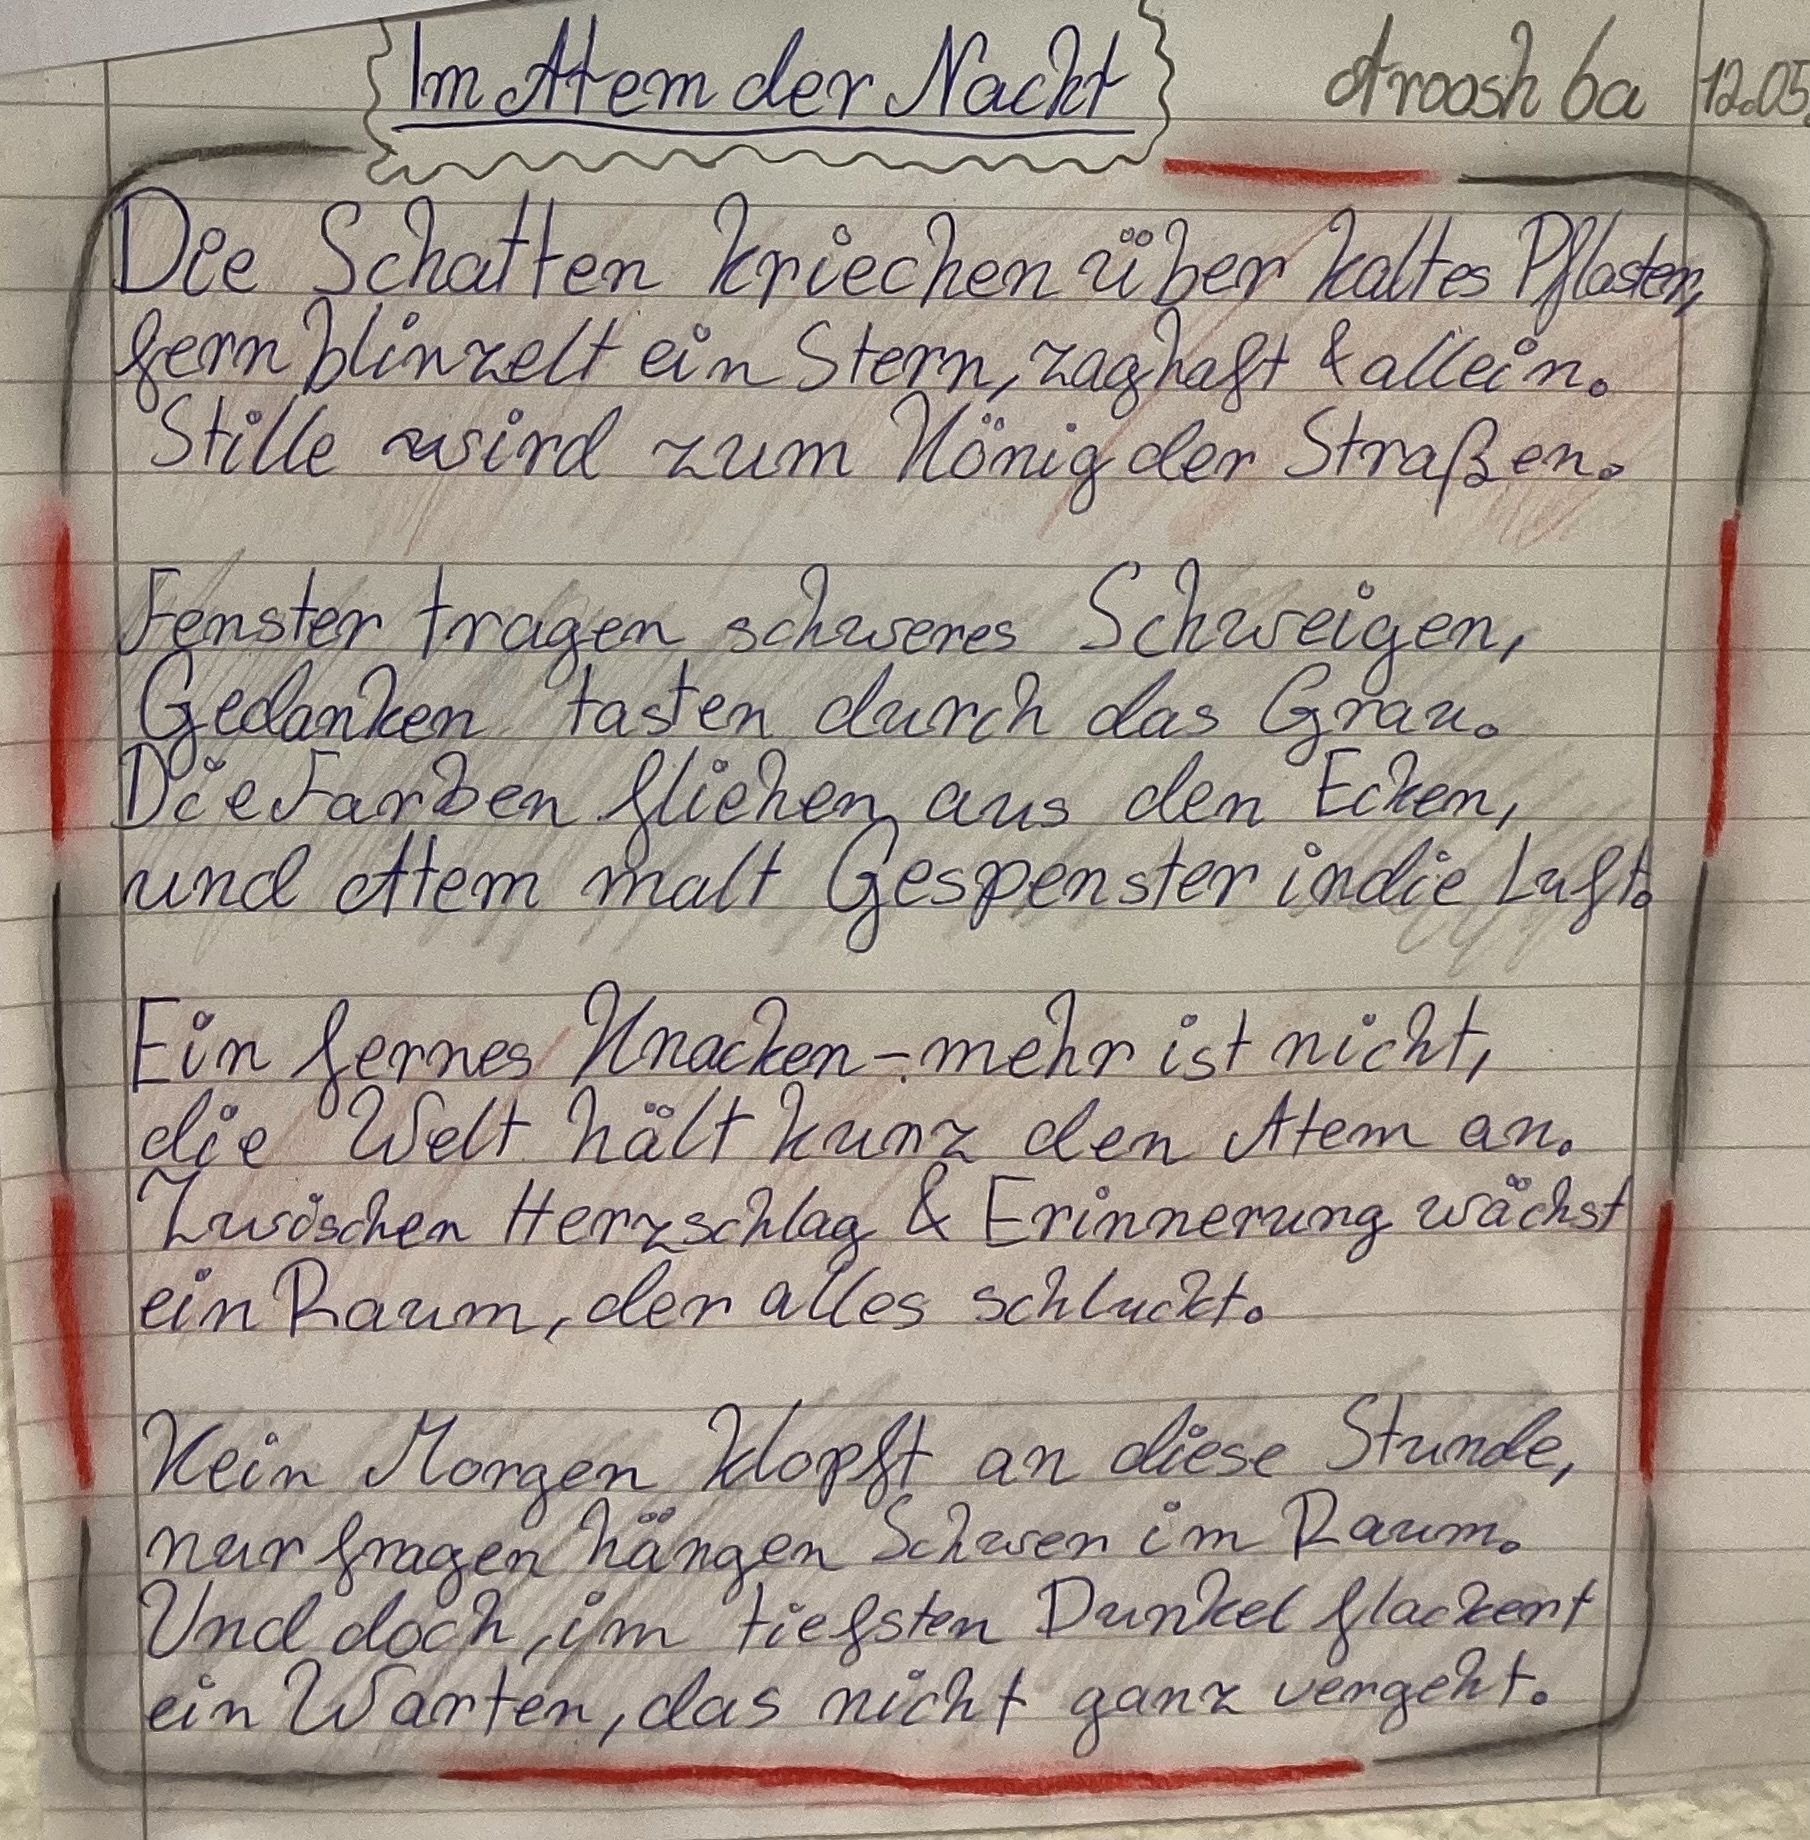 Im Atem der Nacht
Aroosh 6a 12.05.
Die Schatten kriechen über kaltes Pflaster,
fern blinzelt ein Stern, zaghaft & allein.
Stille wird zum König der Straßen.
Fenster tragen schweres Schweigen,
Gedanken tasten durch das Grau.
Die Farben fliehen aus den Ecken,
und Atem malt Gespenster in die Luft.
Ein fernes Knacken - mehr ist nicht,
die Welt hält kurz den Atem an.
Zwischen Herzschlag & Erinnerung wächst
ein Raum, der alles schluckt.
Kein Morgen klopft an diese Stunde,
nur fragen hängen Schwer im Raum.
Und doch, im tiefsten Dunkel flackert
ein Warten, das nicht ganz vergeht.